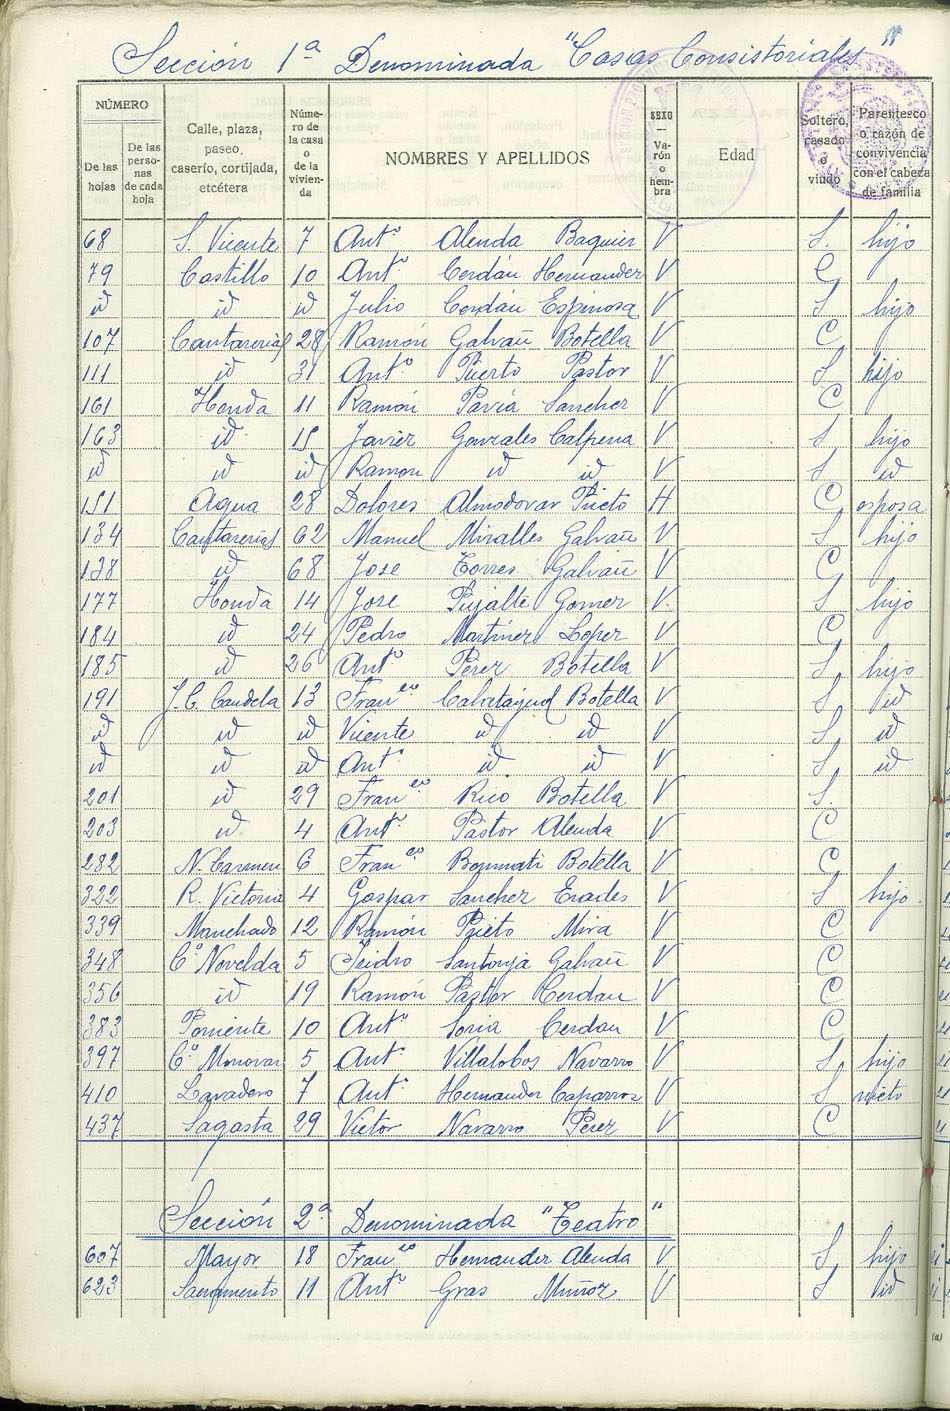 Sección 1ª Denominada "Casas Consistoriales"
NÚMERO
De las hojas
De las personas de cada hoja
Calle, plaza, paseo, caserío, cortijada, etcétera
Número de la casa o de la vivienda
NOMBRES Y APELLIDOS
SEXO — Varón o hembra
Edad
Soltero, casado o viudo
Parentesco o razón de convivencia con el cabeza de familia
68 S. Vicente 7 Antº Alenda Baquier V S. hijo
79 Castillo 10 Antº Cerdán Hernander V C
id id id Julio Cerdán Espinosa V S hijo
107 Cantarerias 28 Ramón Galvañ Botella V C
111 id 31 Antº Puerto Pastor V S hijo
161 Honda 11 Ramón Pavia Sancher V C
163 id 15 Javier Gonzales Calpena V S hijo
id id id Ramon id id V S id
151 Agua 28 Dolores Almodovar Prieto H C esposa
134 Cantarerias 62 Manuel Miralles Galvañ V S hijo
138 id 68 Jose Torres Galvañ V C
177 Honda 14 Jose Pujalte Gomer V. S hijo
184 id 24 Pedro Martiner Loper V C
185 id 26 Antº Perer Botella V S hijo
191 J. C. Candela 13 Franco Calatayud Botella V S id
id id id Vicente id id V S id
id id id Antº id id V S id
201 id 29 Franco Rico Botella V S.
203 id 4 Antº Pastor Alenda V. C
282 N. Carmen 6 Franco Bonmati Botella V C
322 R. Victoria 4 Gaspar Sancher Erades V S hijo.
339 Manchado 12 Ramón Prieto Mira V C
348 Cº Novelda 5 Isidro Santonja Galvañ V C
356 id 19 Ramón Pastor Cerdan V C
383 Poniente 10 Antº Soria Cerdan V C
397 Cº Monovar 5 Antº Villalobos Navarro V S hijo
410 Lavadero 7 Antº Hernander Caparros V S nieto
437 Sagasta 29 Victor Navarro Perer V C
Sección 2ª Denominada "Teatro"
607 Mayor 18 Franco Hernander Alenda V S hijo
623 Sacramento 11 Antº Gras Muñoz V S id